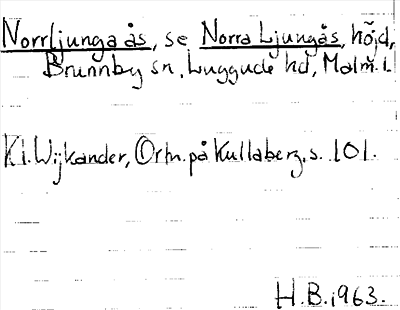 Norrljunga ås, se Norra Ljungås, höjd,
Brunnby sn, Luggude hd, Malm.l.
Kl. Wijkander, Ortn. på Kullaberg, s. 101.
H.B. 1963.